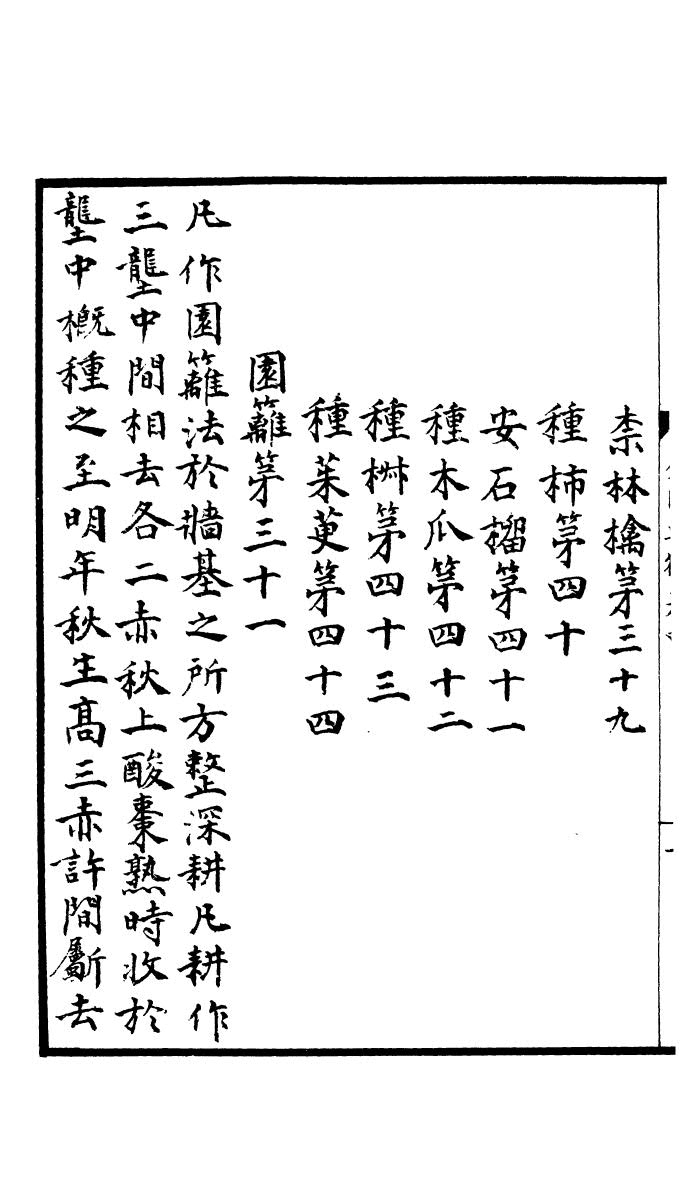 柰林檎第三十九
種柿第四十
安石榴第四十一
種木瓜第四十二
種椒第四十三
種茱萸第四十四
園籬第三十一
凡作園籬法於牆基之所方整深耕凡耕作
三壟中間相去各二赤秋上酸棗熟時收於
壟中概種之至明年秋生高三赤許間斸去